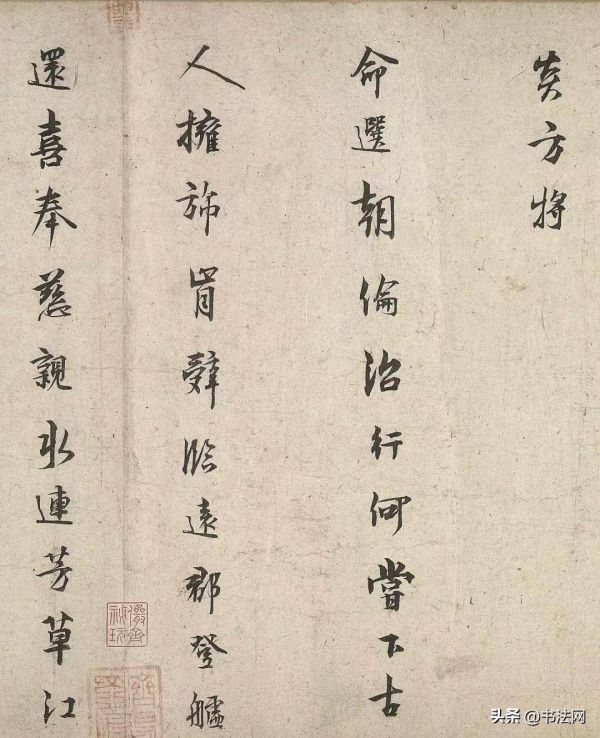 炎方將
命選朝倫治行何嘗下古
人擁旆肯辭臨遠郡登艫
還喜奉慈親水連芳草江
頭条 @书法网